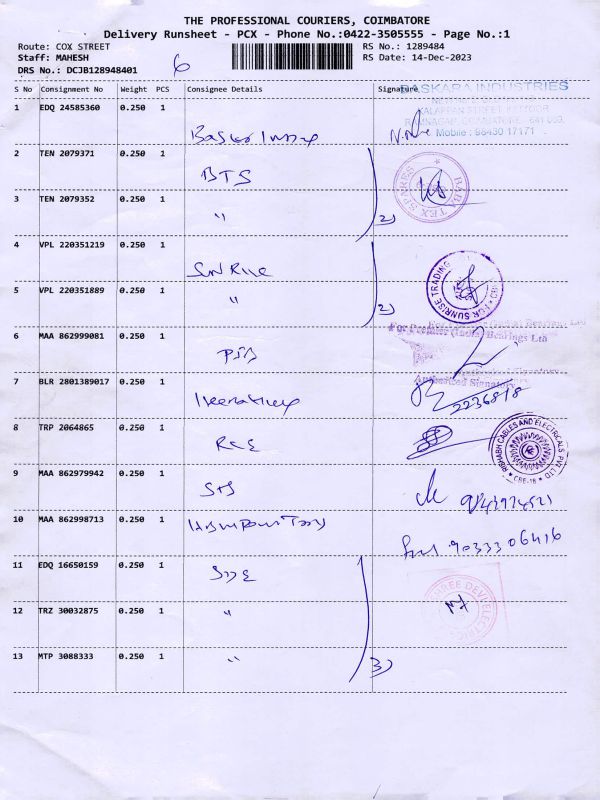 THE PROFESSIONAL COURIERS, COIMBATORE
Delivery Runsheet - PCX - Phone No.:0422-3505555 - Page No.:1
Route: COX STREET
RS No.: 1289484
Staff: MAHESH
RS Date: 14-Dec-2023
DRS No.: DCJB128948401
6
S No Consignment No Weight PCS Consignee Details Signature
BASKARA INDUSTRIES
1 EDQ 24585360 0.250 1
Mobile : 98430 17171
2 TEN 2079371 0.250 1
BTS
BABA TEX SPARES
3 TEN 2079352 0.250 1
"
2)
4 VPL 220351219 0.250 1
SUNRISE TRADING
5 VPL 220351889 0.250 1
"
2)
6 MAA 862999081 0.250 1
For Premier (India) Bearings Ltd
Authorised Signatory
7 BLR 2801389017 0.250 1
2236818
8 TRP 2064865 0.250 1
RCE
RISHABH CABLES AND ELECTRICALS PVT LTD
CBE-18
9 MAA 862979942 0.250 1
10 MAA 862998713 0.250 1
11 EDQ 16650159 0.250 1
SDE
SHREE DEVI ELECTRICS
12 TRZ 30032875 0.250 1
"
13 MTP 3088333 0.250 1
"
3)